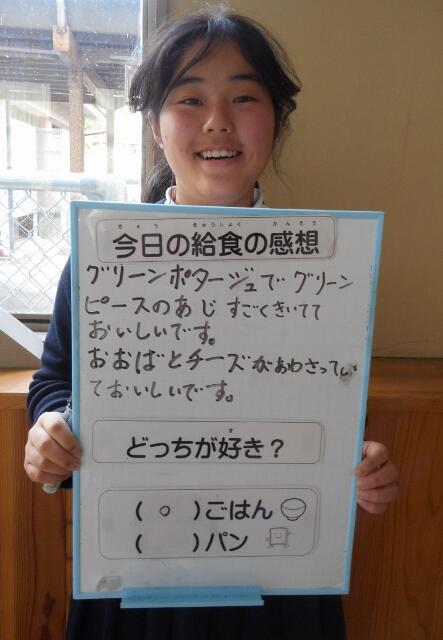 今日の給食の感想
グリーンポタージュで グリーン
ピースのあじ すごくきいてて
おいしいです。
おおばとチーズがあわさってい
ておいしいです。
どっちが好き？
( ○ )ごはん
(   )パン